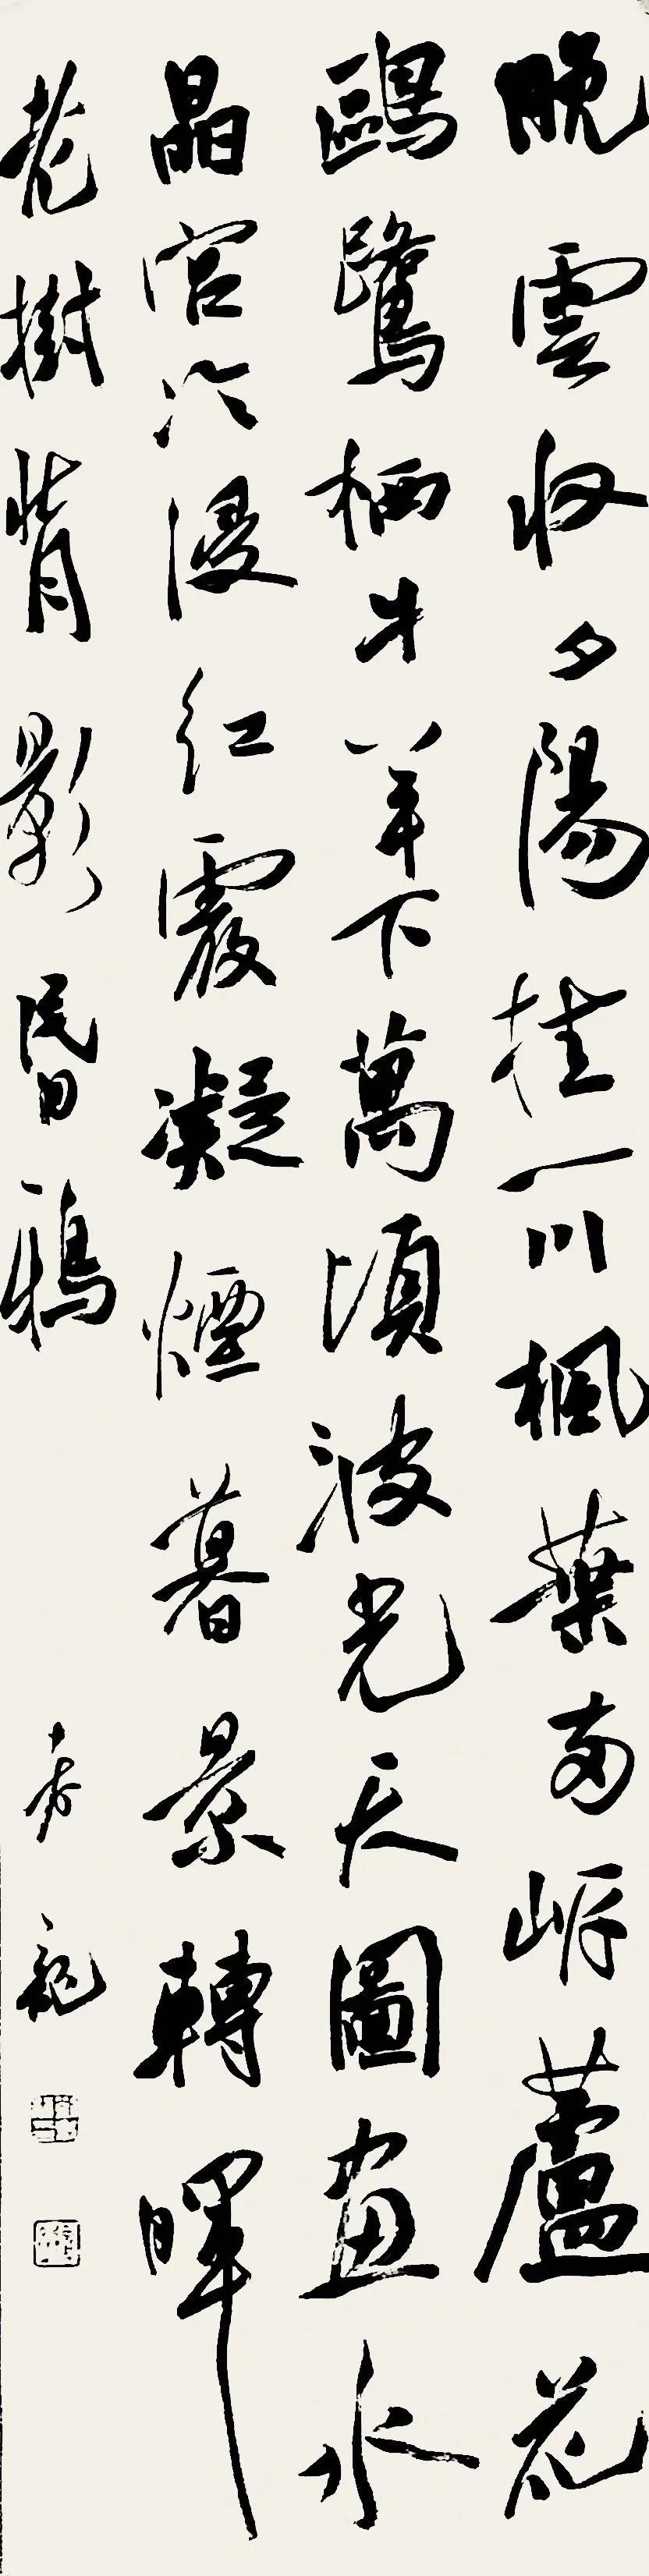 晚雲收夕陽挂一川楓葉兩岸蘆花
鷗鷺栖牛羊下萬頃波光天圖畫水
晶宮冷浸紅霞凝煙暮景轉暉
老樹背影昏鴉